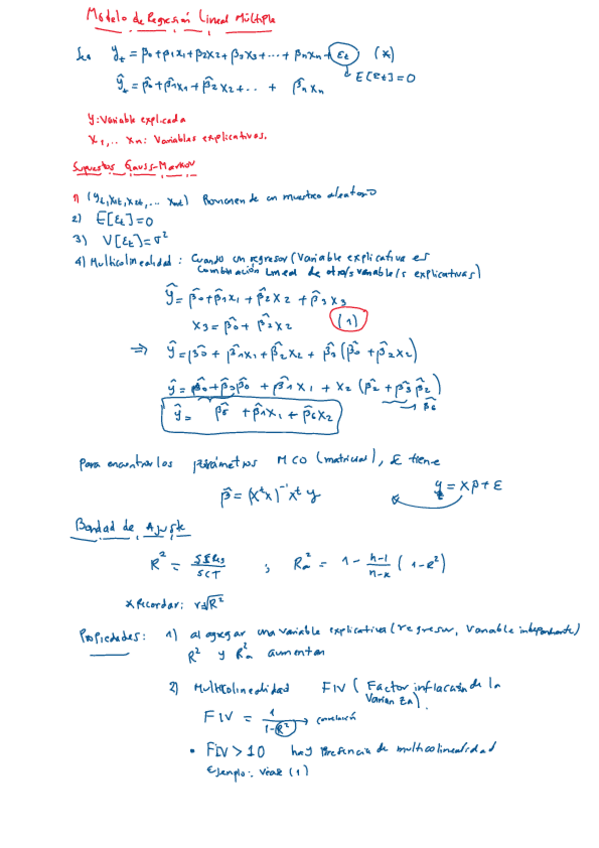 Modelo de Regresión Lineal Múltiple
Sea y_t = β0 + β1x1 + β2x2 + β3x3 + ... + βnxn + εt (*)
E[εt] = 0
ŷ_t = β̂0 + β̂1x1 + β̂2x2 + .. + β̂nxn
y: Variable explicada
x1, .. xn: Variables explicativas.
Supuestos Gauss-Markov
1) (yt, x1t, x2t, ... xnt) Provienen de un muestreo aleatorio
2) E[εt] = 0
3) V[εt] = σ²
4) Multicolinealidad: Cuando un regresor (Variable explicativa es
combinación lineal de otro/s variable/s explicativas)
ŷ = β̂0 + β̂1x1 + β̂2x2 + β̂3x3
x3 = β̂0 + β̂2x2 (1)
⇒ ŷ = β̂0 + β̂1x1 + β̂2x2 + β̂3(β̂0 + β̂2x2)
ŷ = β̂0 + β̂3β̂0 + β̂1x1 + x2(β̂2 + β̂3β̂2)
→ β̂6
ŷ = β̂5 + β̂1x1 + β̂6x2
Para encontrar los parámetros MCO (matricial), se tiene
β̂ = (XᵗX)⁻¹Xᵗy y = Xβ + ε
Bondad de Ajuste
R² = SCReg/SCT ; Ra² = 1 - n-1/n-k (1-R²)
* Recordar: r = √R²
Propiedades: 1) al agregar una variable explicativa (regresor, variable independiente)
R² y Ra² aumentan
2) Multicolinealidad FIV (Factor inflación de la
Varianza).
FIV = 1/1-R² → correlación
• FIV > 10 hay presencia de multicolinealidad
Ejemplo: Véase (1)